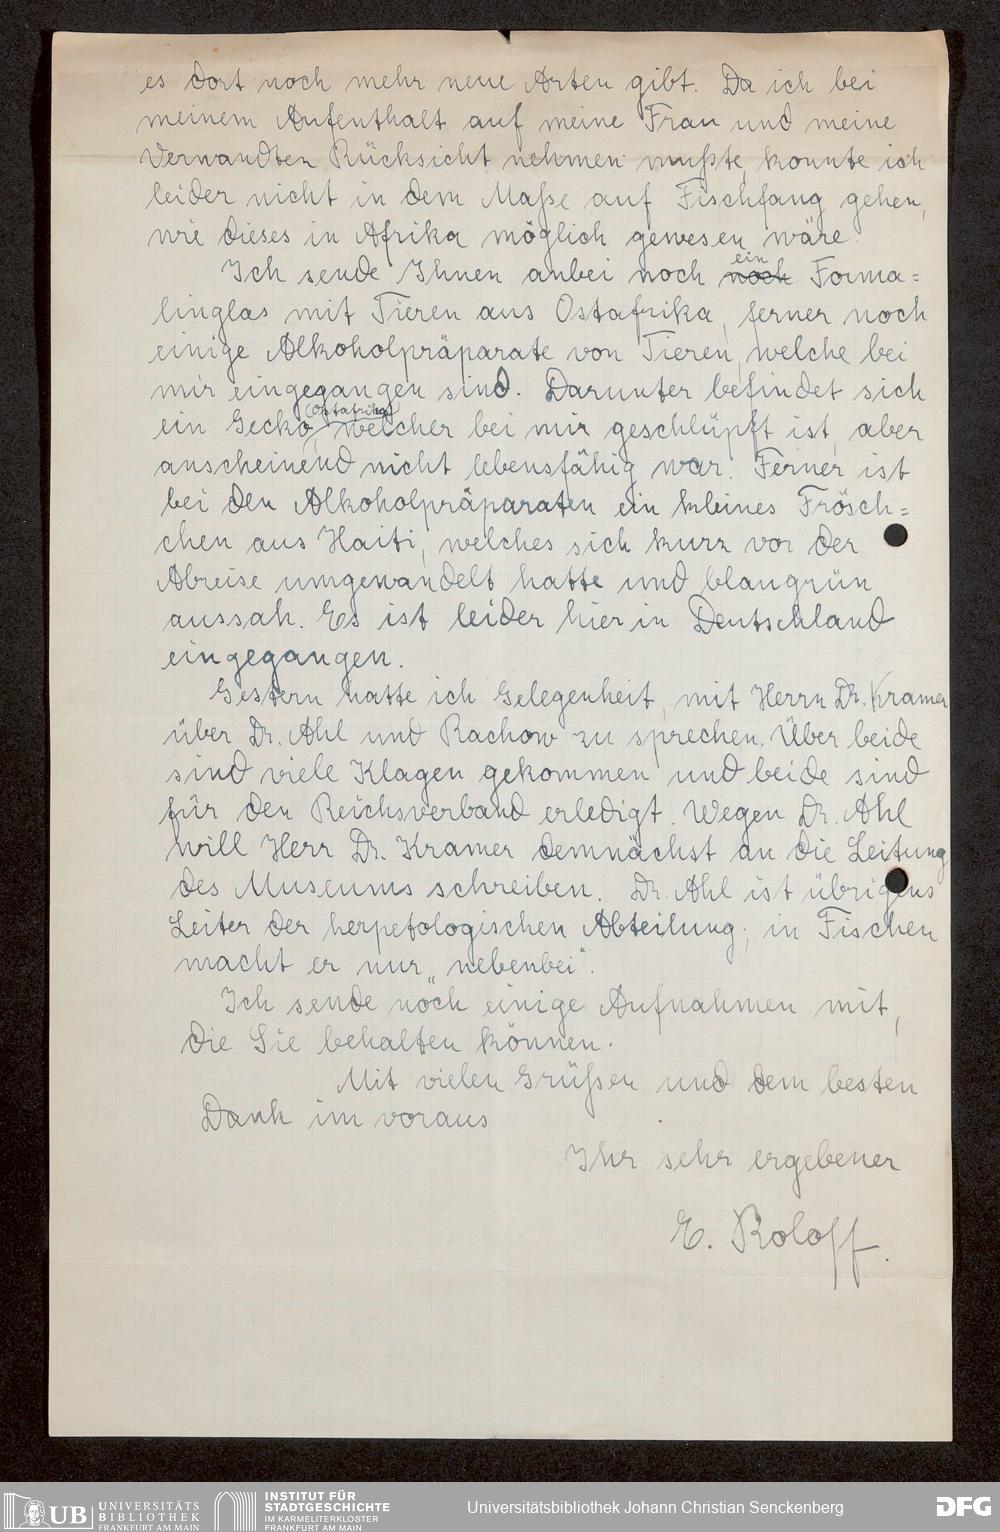 es dort noch mehr neue Arten gibt. Da ich bei
meinem Aufenthalt auf meine Frau und meine
Verwandten Rücksicht nehmen mußte, konnte ich
leider nicht in dem Maße auf Fischfang gehen,
wie dieses in Afrika möglich gewesen wäre.
ein
Ich sende Ihnen anbei noch noch Forma=
linglas mit Tieren aus Ostafrika, ferner noch
einige Alkoholpräparate von Tieren, welche bei
mir eingegangen sind. Darunter befindet sich
(Ostafrika)
ein Gecko, welcher bei mir geschlüpft ist, aber
anscheinend nicht lebensfähig war. Ferner ist
bei den Alkoholpräparaten ein kleines Frösch=
chen aus Haiti, welches sich kurz vor der
Abreise umgewandelt hatte und blaugrün
aussah. Es ist leider hier in Deutschland
eingegangen.
Gestern hatte ich Gelegenheit, mit Herrn Dr. Kramer
über Dr. Ahl und Rachow zu sprechen. Über beide
sind viele Klagen gekommen und beide sind
für den Reichsverband erledigt. Wegen Dr. Ahl
will Herr Dr. Kramer demnächst an die Leitung
des Museums schreiben. Dr. Ahl ist übrigens
Leiter der herpetologischen Abteilung; in Fischen
macht er nur „nebenbei".
Ich sende noch einige Aufnahmen mit,
die Sie behalten können.
Mit vielen Grüßen und dem besten
Dank im voraus
Ihr sehr ergebener
E. Roloff.
UB UNIVERSITÄTS
BIBLIOTHEK
FRANKFURT AM MAIN
INSTITUT FÜR
STADTGESCHICHTE
IM KARMELITERKLOSTER
FRANKFURT AM MAIN
Universitätsbibliothek Johann Christian Senckenberg
DFG